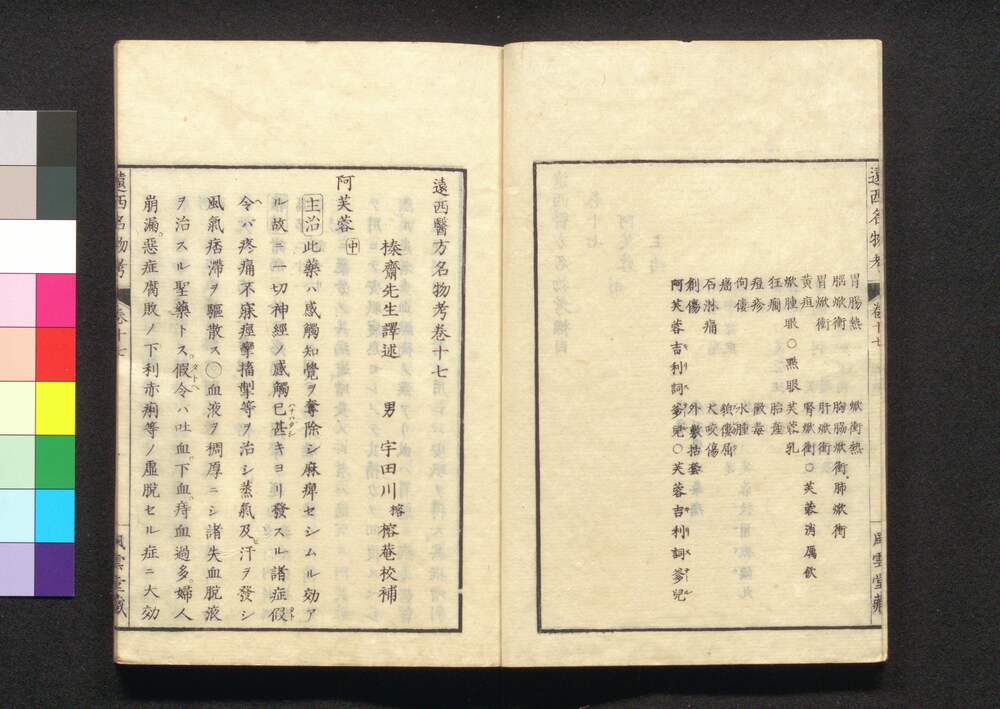 遠西名物考
卷十七
風雲堂藏
胃腸熱　焮衝熱
腦焮衝　胸膈焮衝　肺焮衝
胃焮衝　肝焮衝
黄疸　腎焮衝〇芙蓉消屬飲
焮腫眼〇㷔眼　芙蓉乳
狂癎　胎産
痘疹　黴毒
佝僂　水腫
痛　狼瘡
石淋痛　犬咬傷
創傷　外敷括套
阿芙蓉吉利詞爹兒〇芙蓉吉利詞爹兒
遠西醫方名物考卷十七
榛齋先生譯述　男　宇田川榕　榕菴校補
阿芙蓉 中
主治 此藥ハ感觸知覺ヲ奪除シ麻痺セシムル効ア
ル故ニ一切神經ノ感觸已甚キヨリ發スル諸症假
令ヘバ疼痛不寐痙攣搐掣等ヲ治シ蒸氣及ヒ汗ヲ發シ
風氣痞滯ヲ驅散ス〇血液ヲ稠厚ニシ諸失血脱液
ヲ治スル聖藥トス假令ヘバ吐血下血痔血過多婦人
崩漏惡症腐敗ノ下利赤痢等ノ虛脱セル症ニ大効
遠西名物考
卷十七
風雲堂藏